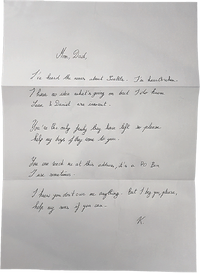 Mom, Dad,
I've heard the news about Seattle. I'm heartbroken.
I have no idea what's going on but I do know
Sean & Daniel are innocent.
You're the only family they have left so please
help my boys if they come to you.
You can reach me at this address, it's a P.O. Box
I use sometimes
I know you don't owe me anything. But I beg you, please,
help my sons if you can.
K.